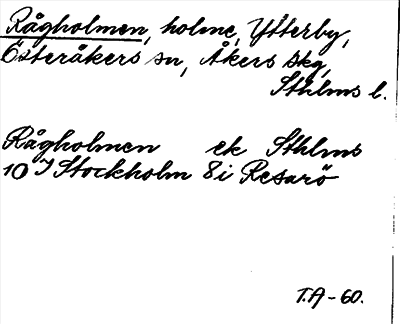 Rågholmen, holme, Ytterby,
Österåkers sn, Åkers skg,
Sthlms l.
Rågholmen ek Sthlms
10 I Stockholm 8 i Resarö
T.A-60.